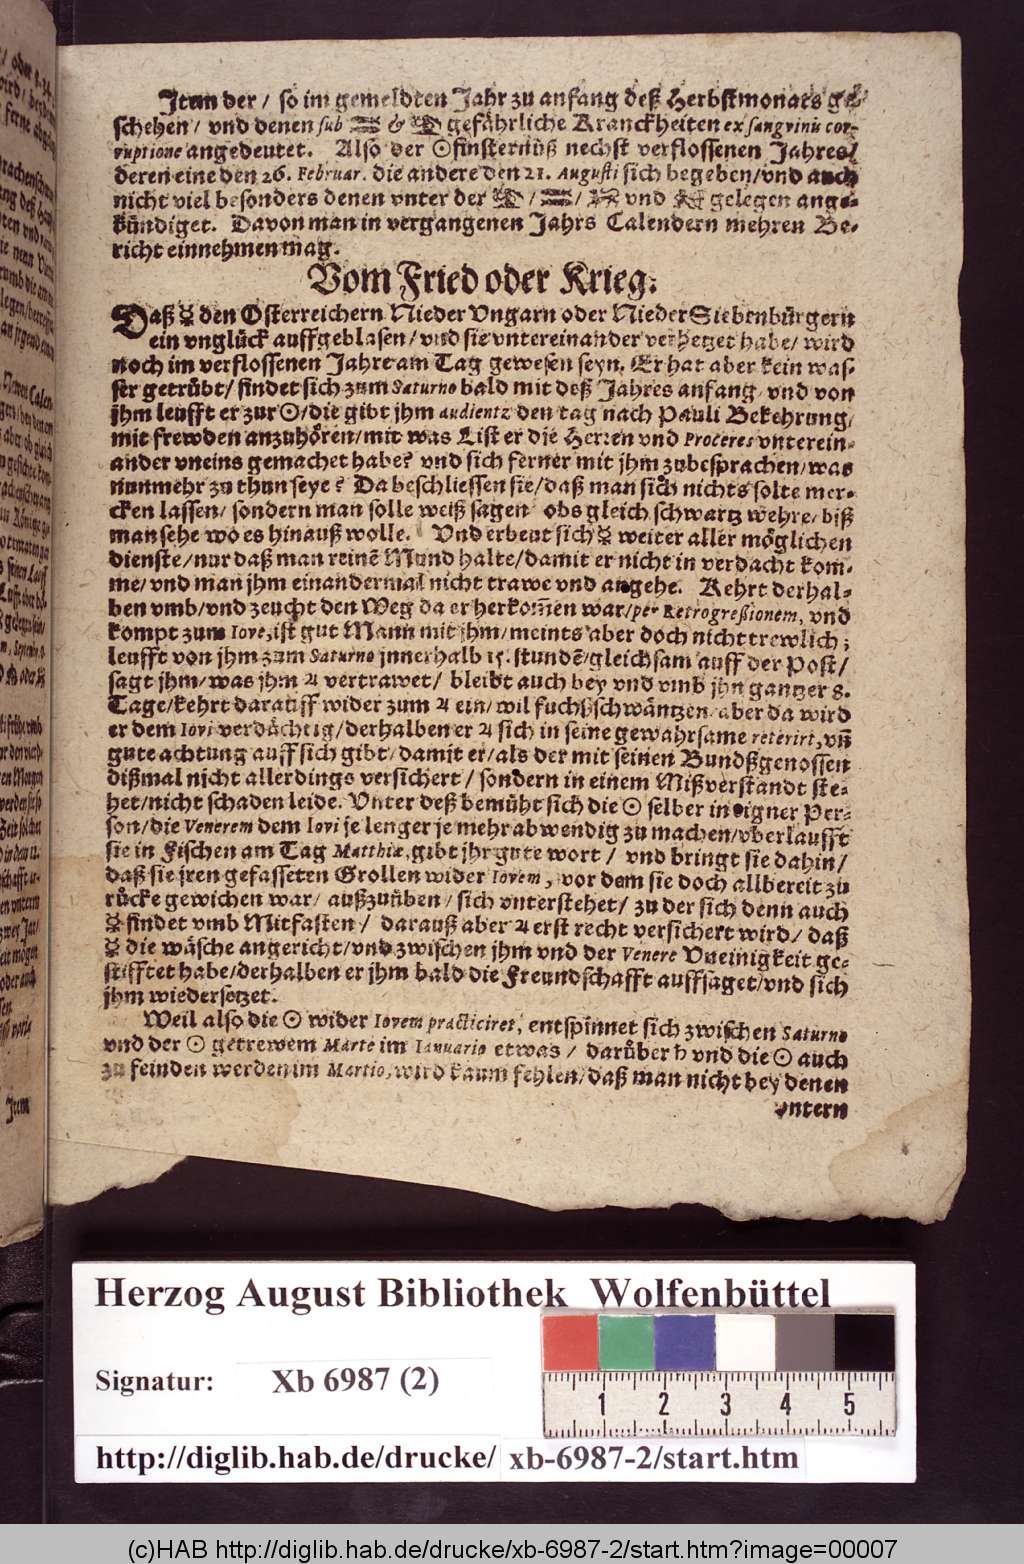 Item der / so im gemeldten Jahr zu anfang deß Herbstmonats ge-
schehen / vnd denen sub ♒ & gefährliche Kranckheiten ex sanguinis cor-
ruptione angedeutet. Also der ☉finsternüß nechst verflossenen Jahres/
deren eine den 26. Februar. die andere den 21. Augusti sich begeben/vnd auch
nicht viel besonders denen vnter der / ♒ / vnd gelegen ange-
kündiget. Davon man in vergangenen Jahrs Calendern mehren Be-
richt einnehmen mag.
Vom Fried oder Krieg.
Daß ☿ den Osterreichern Nieder Vngarn oder Nieder Siebenbürgern
ein vnglück auffgeblasen/ vnd sie vntereinander verhetzet habe/ wird
noch im verflossenen Jahre am Tag gewesen seyn. Er hat aber kein was-
ser getrübt/ findet sich zum Saturno bald mit deß Jahres anfang/ vnd von
jhm leufft er zur ☉/die gibt jhm audientz den tag nach Pauli Bekehrung/
mit frewden anzuhören/mit was List er die Herren vnd Proceres vnterein-
ander vneins gemachet habe? vnd sich ferner mit jhm zubesprachen/was
nunmehr zu thun seye? Da beschliessen sie/daß man sich nichts solte mer-
cken lassen/ sondern man solle weiß sagen obs gleich schwartz wehre/ biß
man sehe wo es hinauß wolle. Vnd erbeut sich ☿ weiter aller möglichen
dienste/nur daß man reinē Mund halte/damit er nicht in verdacht kom-
me/vnd man jhm einandermal nicht trawe vnd angehe. Kehrt derhal-
ben vmb/vnd zeucht den Weg da er herkom̄en war/per Retrogreßionem, vnd
kompt zum Iove, ist gut Mann mit jhm/meints aber doch nicht trewlich;
leufft von jhm zum Saturno jnnerhalb 15. stundē/gleichsam auff der Post/
sagt jhm/was jhm ♃ vertrawet/ bleibt auch bey vnd vmb jhn gantzer 8.
Tage/kehrt darauff wider zum ♃ ein/wil fuchsschwäntzen/aber da wird
er dem Iovi verdächtig/derhalben er ♃ sich in seine gewahrsame reterirt, vn̄
gute achtung auff sich gibt/damit er/als der mit seinen Bundßgenossen
dißmal nicht allerdings versichert/ sondern in einem Mißverstandt ste-
het/nicht schaden leide. Vnter deß bemüht sich die ☉ selber in eigner Per-
son/die Venerem dem Iovi je lenger je mehr abwendig zu machen/vberlaufft
sie in Fischen am Tag Matthiæ, gibt jhr gute wort/ vnd bringt sie dahin/
daß sie jren gefasseten Grollen wider Iovem, vor dem sie doch allbereit zu
růcke gewichen war/ außzuüben/ sich vnterstehet/ zu der sich denn auch
☿ findet vmb Mitfasten/ darauß aber ♃ erst recht versichert wird/ daß
☿ die wäsche angericht/vnd zwischen jhm vnd der Venere Vneinigkeit ge-
stifftet habe/derhalben er jhm bald die Freundschafft auffsaget/vnd sich
jhm widersetzet.
Weil also die ☉ wider Iovem practiciret, entspinnet sich zwischen Saturno
vnd der ☉ getrewem Marte im Ianuario etwas/ darůber ♄ vnd die ☉ auch
zu feinden werden im Martio, wird kaum fehlen/daß man nicht bey denen
vntern
Item
Herzog August Bibliothek Wolfenbüttel
Signatur: Xb 6987 (2)
1 2 3 4 5
http://diglib.hab.de/drucke/ xb-6987-2/start.htm
(c)HAB http://diglib.hab.de/drucke/xb-6987-2/start.htm?image=00007